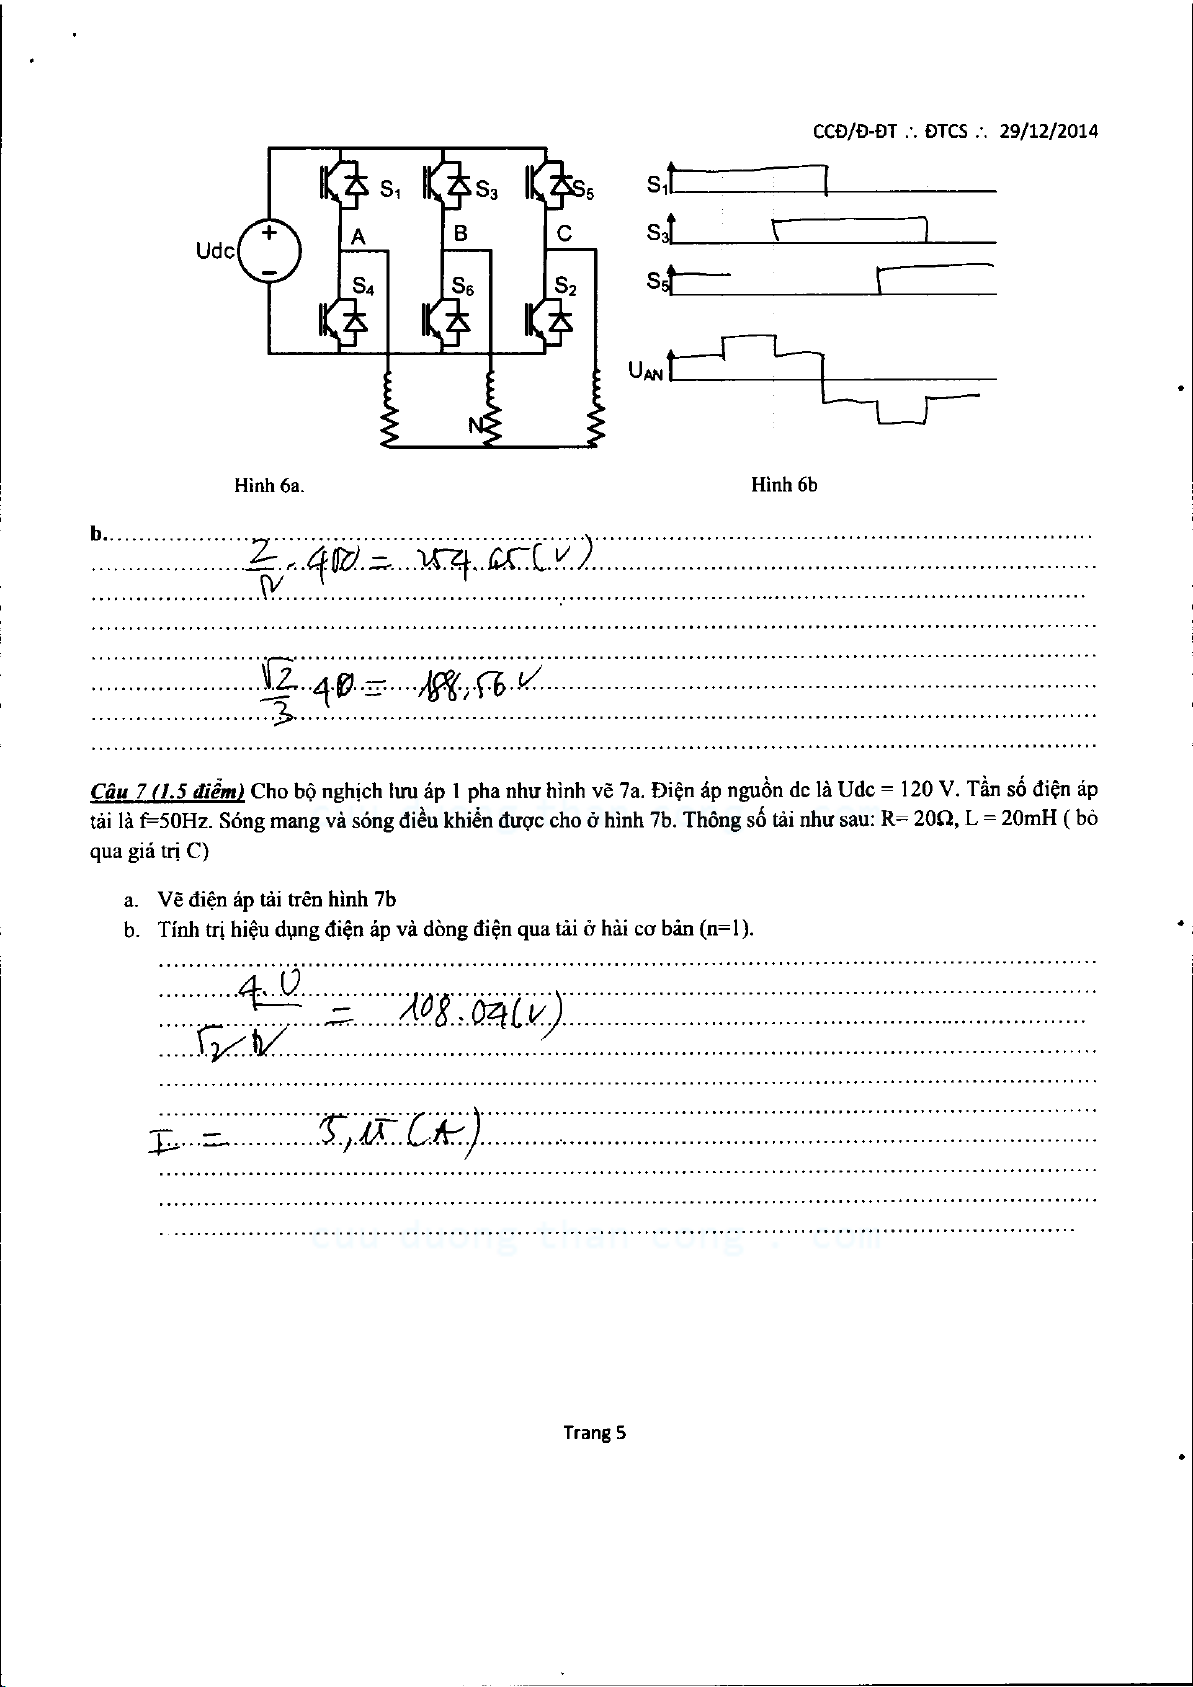 CCĐ/Đ-ĐT ∴ ĐTCS ∴ 29/12/2014
S1 S3 S5
A B C
Udc
+
-
S4 S6 S2
N
S1
S3
S5
UAN
Hình 6a.
Hình 6b
b.
2/π . 400 = 254.65 (V)
√2/3 400 = 188,56 V
Câu 7 (1.5 điểm) Cho bộ nghịch lưu áp 1 pha như hình vẽ 7a. Điện áp nguồn dc là Udc = 120 V. Tần số điện áp
tải là f=50Hz. Sóng mang và sóng điều khiển được cho ở hình 7b. Thông số tải như sau: R= 20Ω, L = 20mH ( bỏ
qua giá trị C)
a. Vẽ điện áp tải trên hình 7b
b. Tính trị hiệu dụng điện áp và dòng điện qua tải ở hài cơ bản (n=1).
4.U / √2 π = 108.04 (V)
I = 5,15 (A)
cuu duong than cong . com
Trang 5